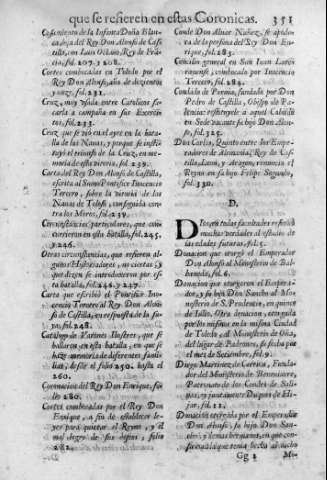 que se refieren en estas Coronicas. 351
Casamiento de la Infanta Doña Blan-
ca, hija del Rey Don Alonso de Cas-
tilla, con Luis Octavo, Rey de Fran-
cia, fol. 207. y 208.
Cortes convocadas en Toledo por el
Rey Don Alonso, año de
y onze, fol. 231.
Cruz, muy usada entre Catolicos sa-
carla a campaña en sus Exerci-
tos, fol. 233.
Cruz, que se viò en el ayre en la bata-
lla de las Navas, y porquè se insti-
tuyò el triunfo de la Cruz, en me-
moria de esta vitoria, fol. 239.
Carta del Rey Don Alonso de Castilla,
escrita al Sumo Pontifice Inocencio
Tercero, sobre la vitoria de las
Navas de Tolosa, conseguida con-
tra los Moros, fol. 239.
Circunstancias particulares, que con-
currieron en esta batalla, fol. 245.
y 246.
Otras circunstancias, que refieren al-
gunos Historiadores, no ciertas, y
que dizen se introduxeron por es-
ta batalla, fol. 246. y 247.
Carta que escriviò el Pontifice Ino-
cencio Tercero al Rey Don Alon-
so de Castilla, en respuesta de la su-
ya, fol. 248.
Catalogo de Varones Ilustres, que se
hallaron en esta batalla, en que se
haze memoria de diferentes fami-
lias, desde el folio 250. hasta el
260.
Coronacion del Rey Don Enrique, fo-
lio 280.
Cortes convocadas por el Rey Don
Enrique, a fin de establecer le-
yes para quietar el Reyno, y el
mal logro de sus fines, folio
282.
Conde Don Alvar Nuñez, se apode-
ra de la persona del Rey Don En-
rique, fol. 283.
Concilio general en San Iuan Late-
ranense, convocado por Inocencio
Tercero, fol. 284.
Condado de Pernia, fundado por Don
Pedro de Castilla, Obispo de Pa-
lencia: restituyele a aquel Cabildo
en Sede vacante su hijo Don Alon-
so, fol. 325.
Don Carlos, Quinto entre los Empe-
radores de Alemania, Rey de Cas-
tilla, Leon, y Aragon, renuncia el
Reyno en su hijo Felipe Segundo,
fol. 330.
D.
muchas verdades al
las edades futuras, fol. 5.
Donacion que otorgò el Emperador
Don Alonso al Monasterio de
fol. 6.
Donacion que otorgaron el Empera-
dor, y su hijo Don Sancho al Mo-
nasterio de S. Prudencio, en quinze
de Iulio. Otra donacion, otorgada
por los mismos en la misma Ciudad
de Toledo, al Monasterio de Oña,
del lugar de Padrones, su fecha por
el mes de Setiembre, fol. 9.
Diego Martinez de Carrera, Funda-
dor del Monasterio de Benevivere,
Patronato de los Condes de Sali-
nas, y juntamente Duques de Hi-
jar, fol. 11.
Donacion otorgada por el Emperador
Don Alonso, su hijo Don San-
cho, y demàs
Gg 2 Mo-